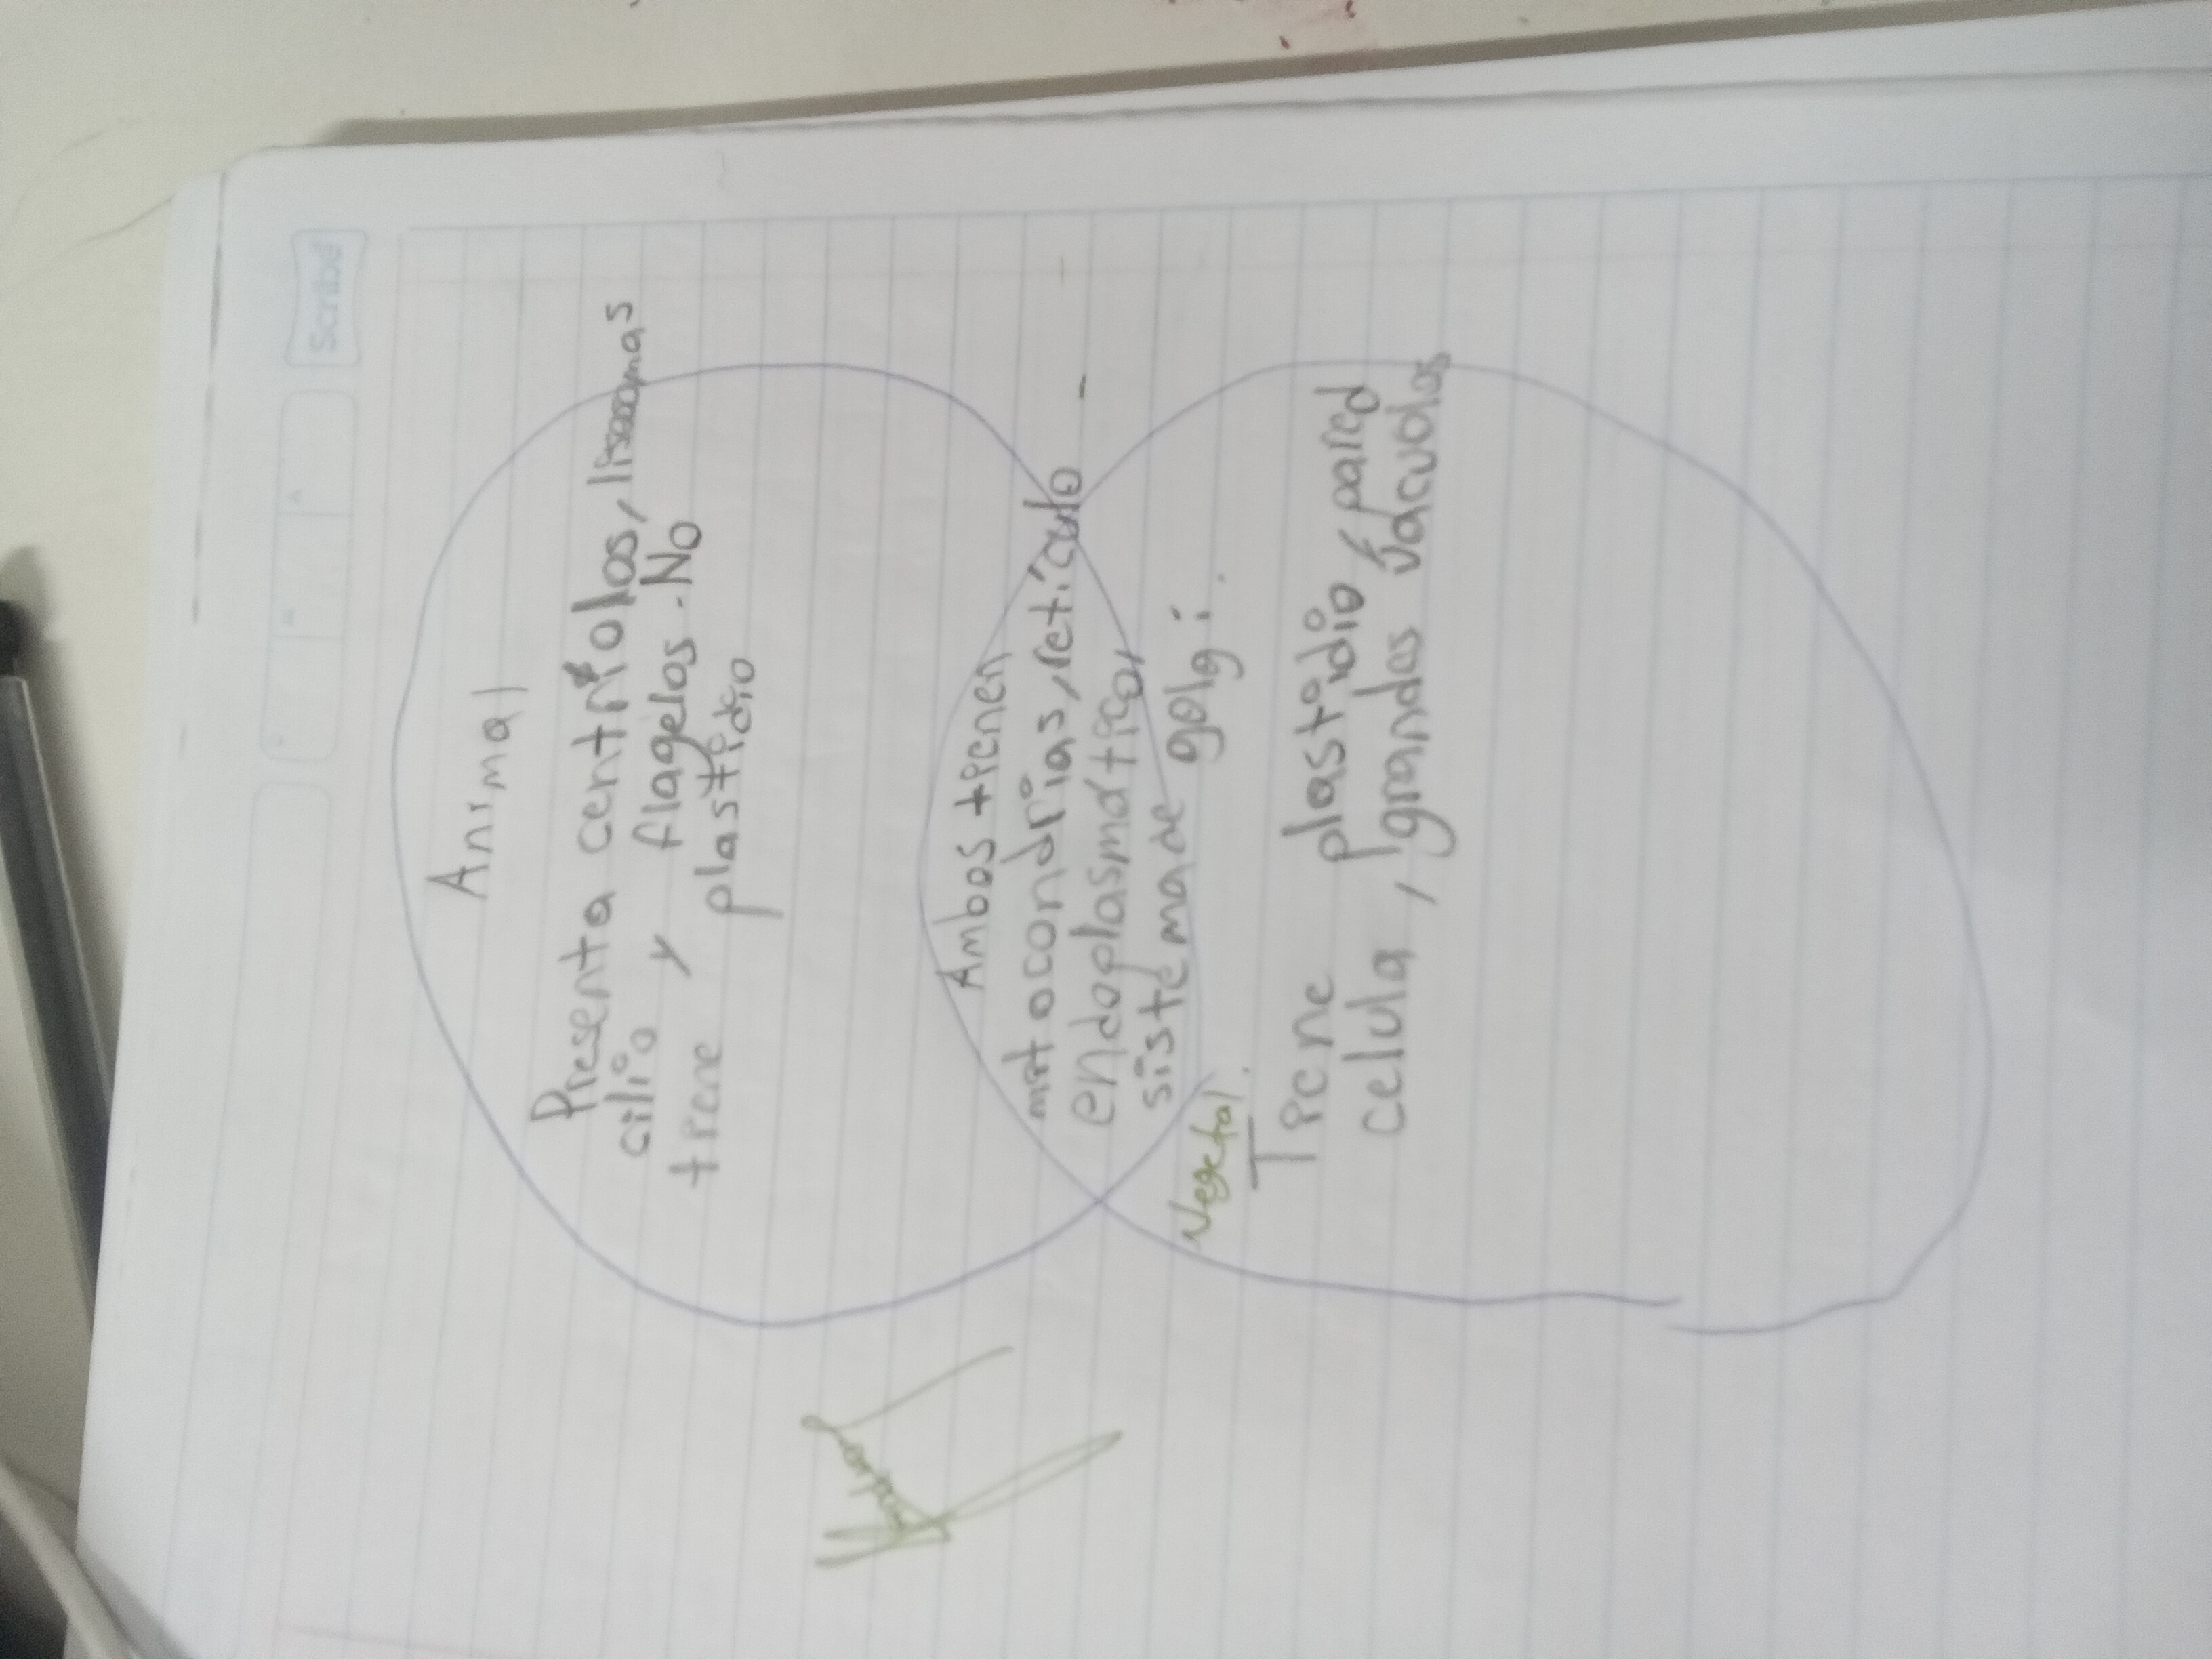 Scribe
Animal
Presenta centriolos, lisosomas
cilio y flagelos. No
tiene plastidio
Ambos tienen
mitocondrias, retículo
endoplasmático,
sistema de golgi.
Vegetal.
Tiene plastidio, pared
celula, grandes vacuolas